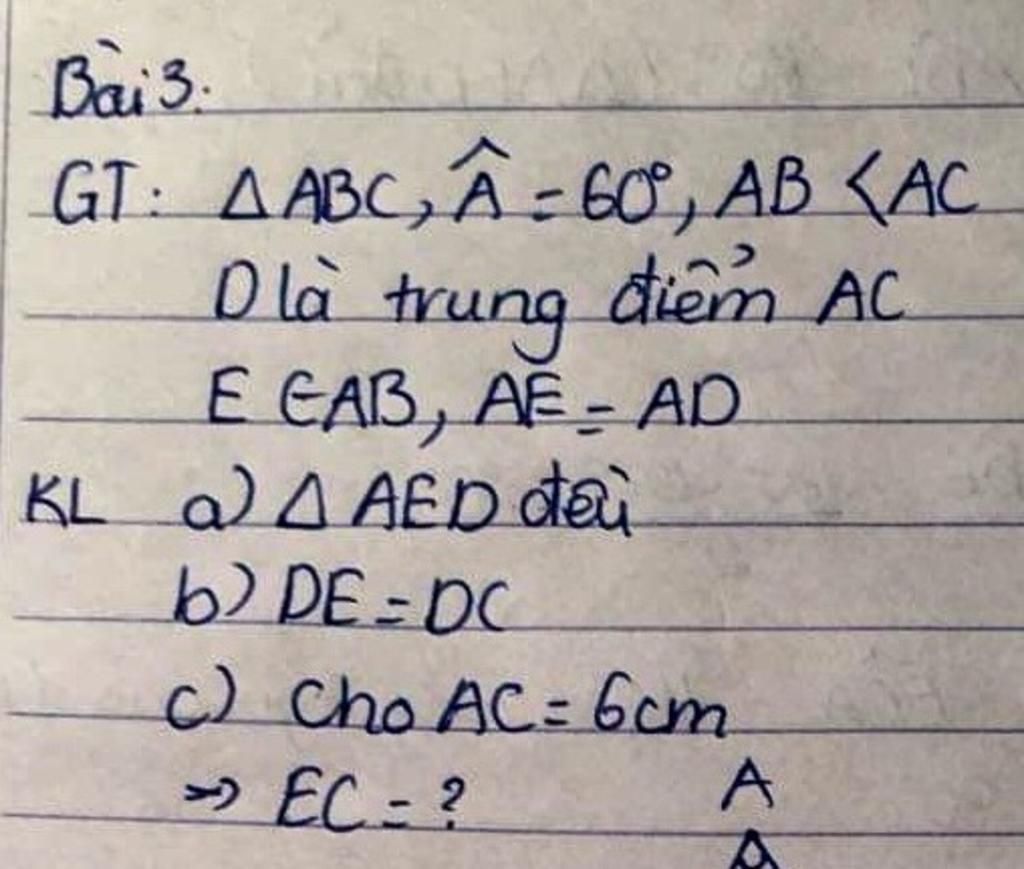 Bài 3:
GT: Δ ABC, Â = 60°, AB < AC
D là trung điểm AC
E ∈ AB, AE = AD
KL a) Δ AED đều
b) DE = DC
c) Cho AC = 6cm
⇒ EC = ?
A